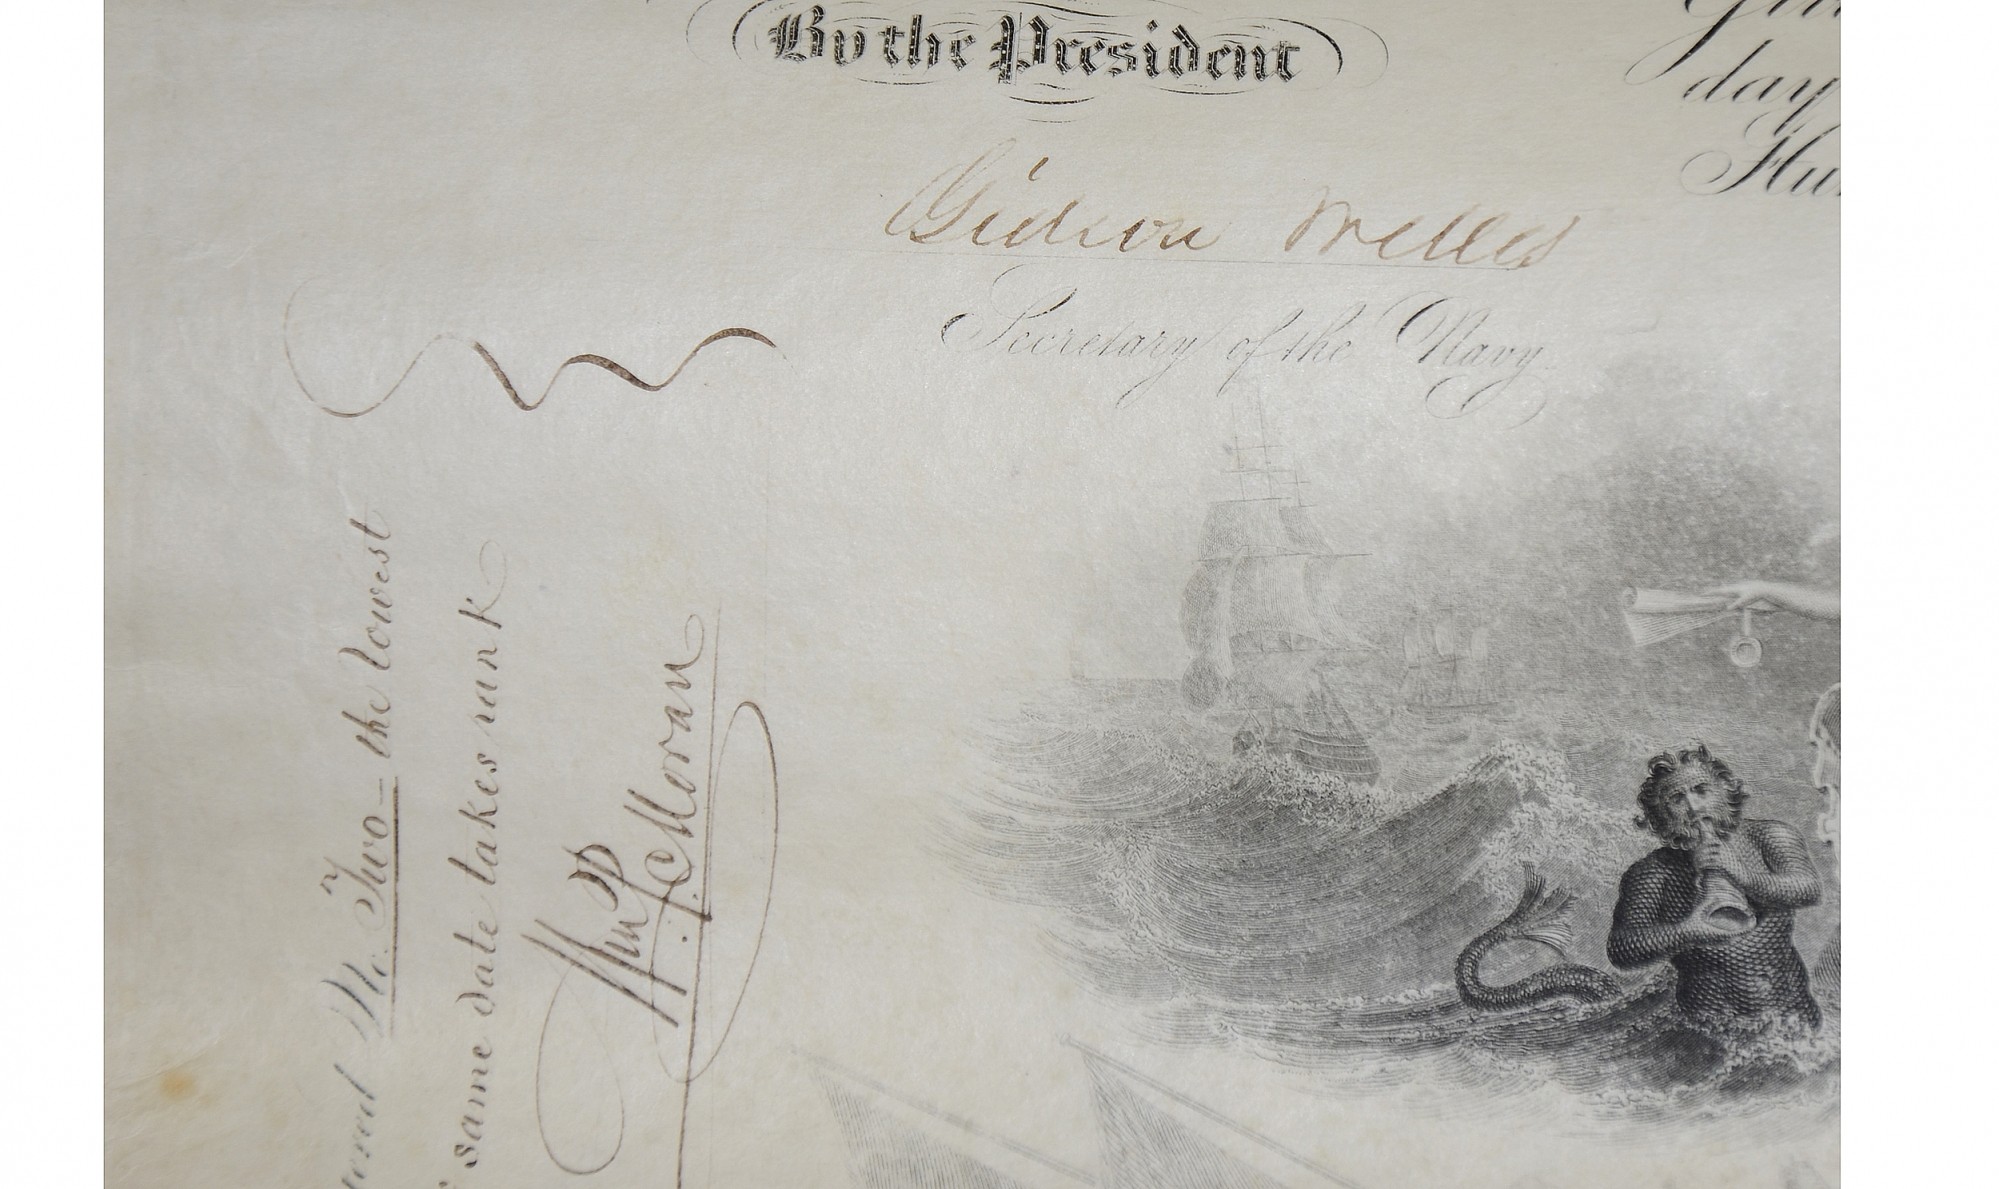 By the President
Gideon Welles
Secretary of the Navy.
day
Hun
No. Two – the lowest
same date takes rank
Wm P. Moran